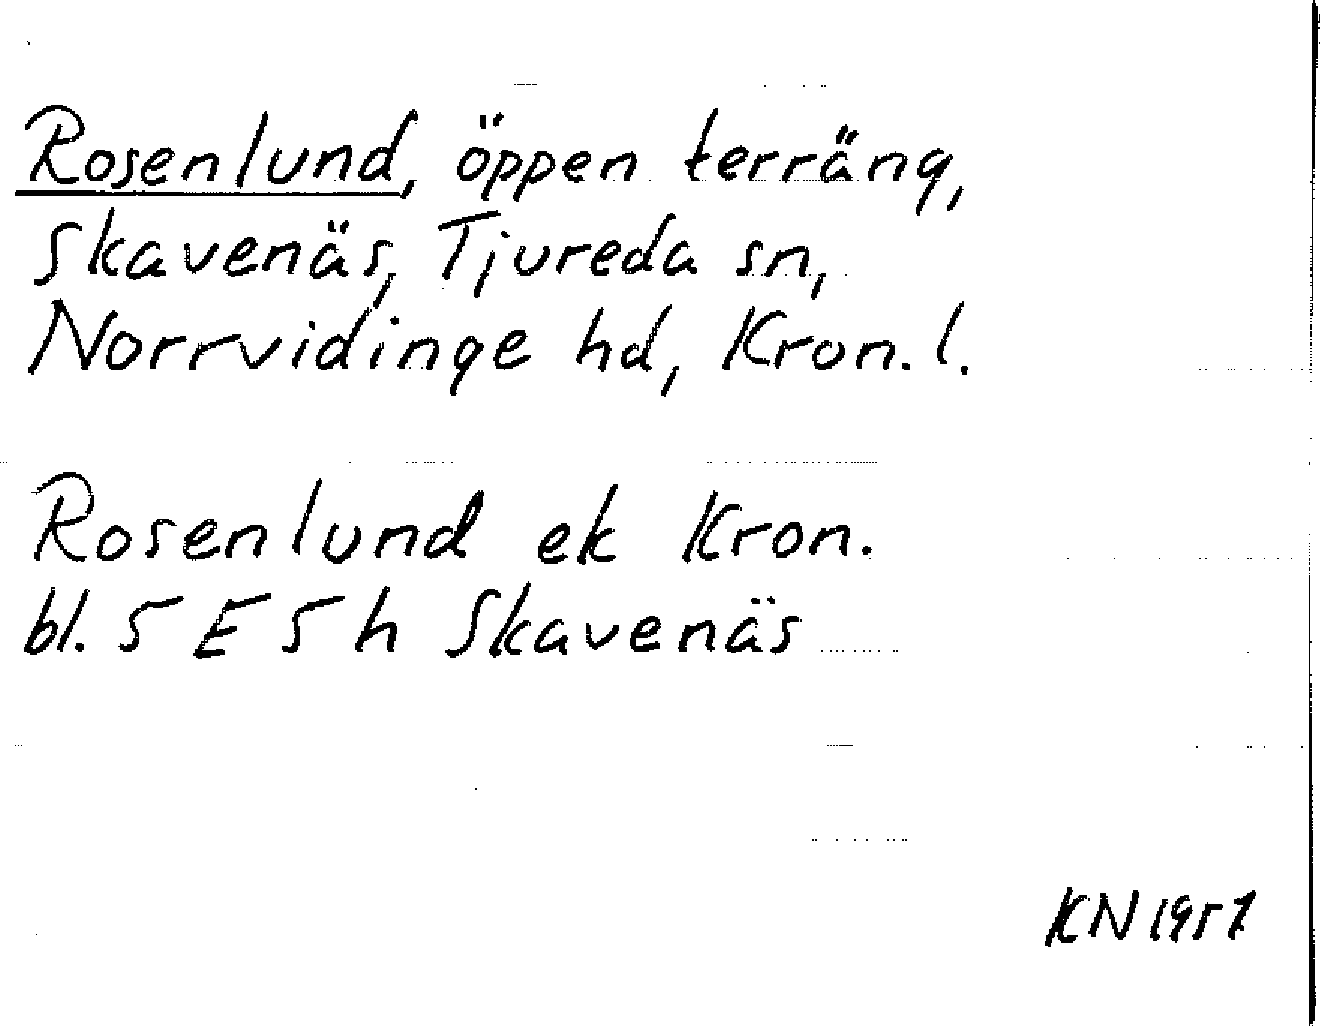 Rosenlund, öppen terräng,
Skavenäs, Tjureda sn,
Norrvidinge hd, Kron. l.
Rosenlund ek Kron.
bl. 5 E 5 h Skavenäs
KN 1957